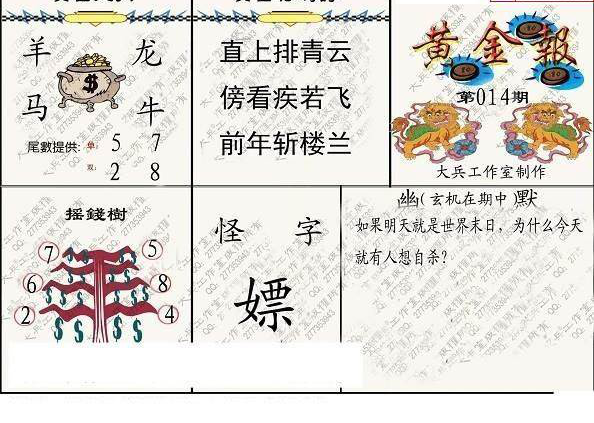 羊 龙
马 牛
尾數提供: 单: 5 7
双: 2 8
直上排青云
傍看疾若飞
前年斩楼兰
黄金報
第014期
大兵工作室制作
摇錢樹
7 5
6 8
2 4
怪 字
嫖
幽(玄机在期中)默
如果明天就是世界末日，为什么今天
就有人想自杀?